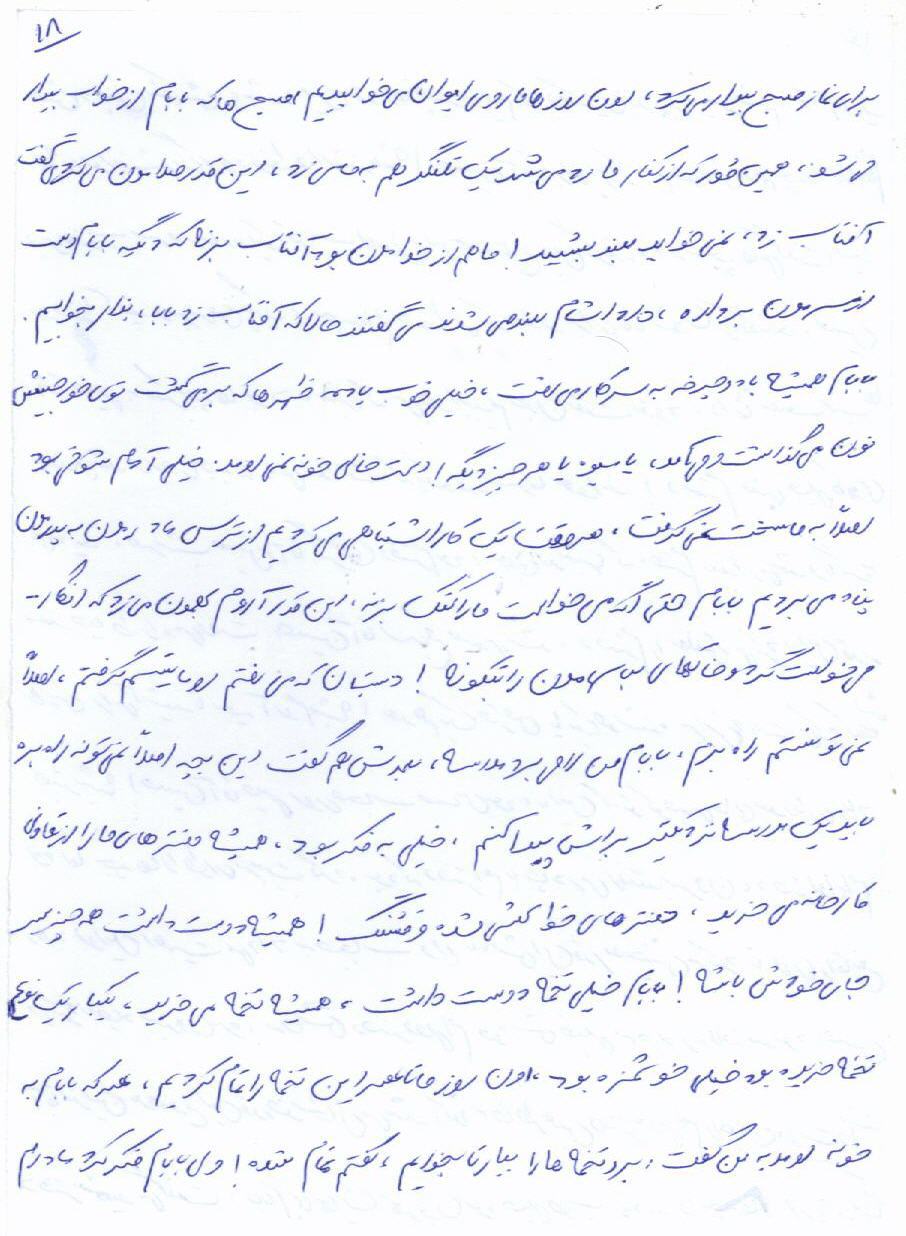 ۱۸
برای نماز صبح بیدار می‌کرد، اون روزها ما روی ایوان می‌خوابیدیم، صبح ها که بابام از خواب بیدار
می‌شد، همین طور که از کنار ما رد می‌شد یک تلنگر هم به ما می‌زد، این قدر صدامون می‌کرد، می‌گفت
آفتاب زد، نمی‌خواید بلند بشید! ما هم از خدامون بود آفتاب بزنه که دیگه بابام دست
از سرمون برداره، داداشام بلند می‌شدند می‌گفتند حالا که آفتاب زد بابا، بذار بخوابیم.
بابام همیشه با دوچرخه به سر کار می‌رفت، خیلی خوب یادمه ظهرها که برمی‌گشت توی خورجینش
نون می‌گذاشت و می‌آمد، یا میوه یا هر چیز دیگه! دست خالی خونه نمی‌اومد. خیلی آدم شوخی بود
اصلاً به ما سخت نمی‌گرفت، هر وقت یک کار اشتباهی می‌کردیم از ترس مادرمون به پدرمون
پناه می‌بردیم بابام حتی اگه می‌خواست ما را کتک بزنه، این قدر آروم بهمون می‌زد که انگار
می‌خواست گرد و خاکهای لباس مون را بتکونه! دبستان که می‌رفتم روماتیسم گرفتم، اصلاً
نمی‌تونستم راه برم، بابام من را می‌برد مدرسه، بعدش هم گفت این بچه اصلاً نمی‌تونه راه بره
باید یک مدرسه نزدیکتر براش پیدا کنم، خیلی به فکر بود، همیشه دفترهای ما را از تعاونی
کارخانه می‌خرید، دفترهای خط کشی شده و قشنگ! همیشه دوست داشت هر چیز سر
جای خودش باشه! بابام خیلی تخمه دوست داشت، همیشه تخمه می‌خرید، یکبار یک نوع
تخمه خریده بود خیلی خوشمزه بود، اون روز ما تا عصر این تخمه را تمام کردیم، عصر که بابام به
خونه اومد به من گفت: برو تخمه ها را بیار تا بخوریم، گفتم تمام شده! ولی بابام فکر کرد مادرم